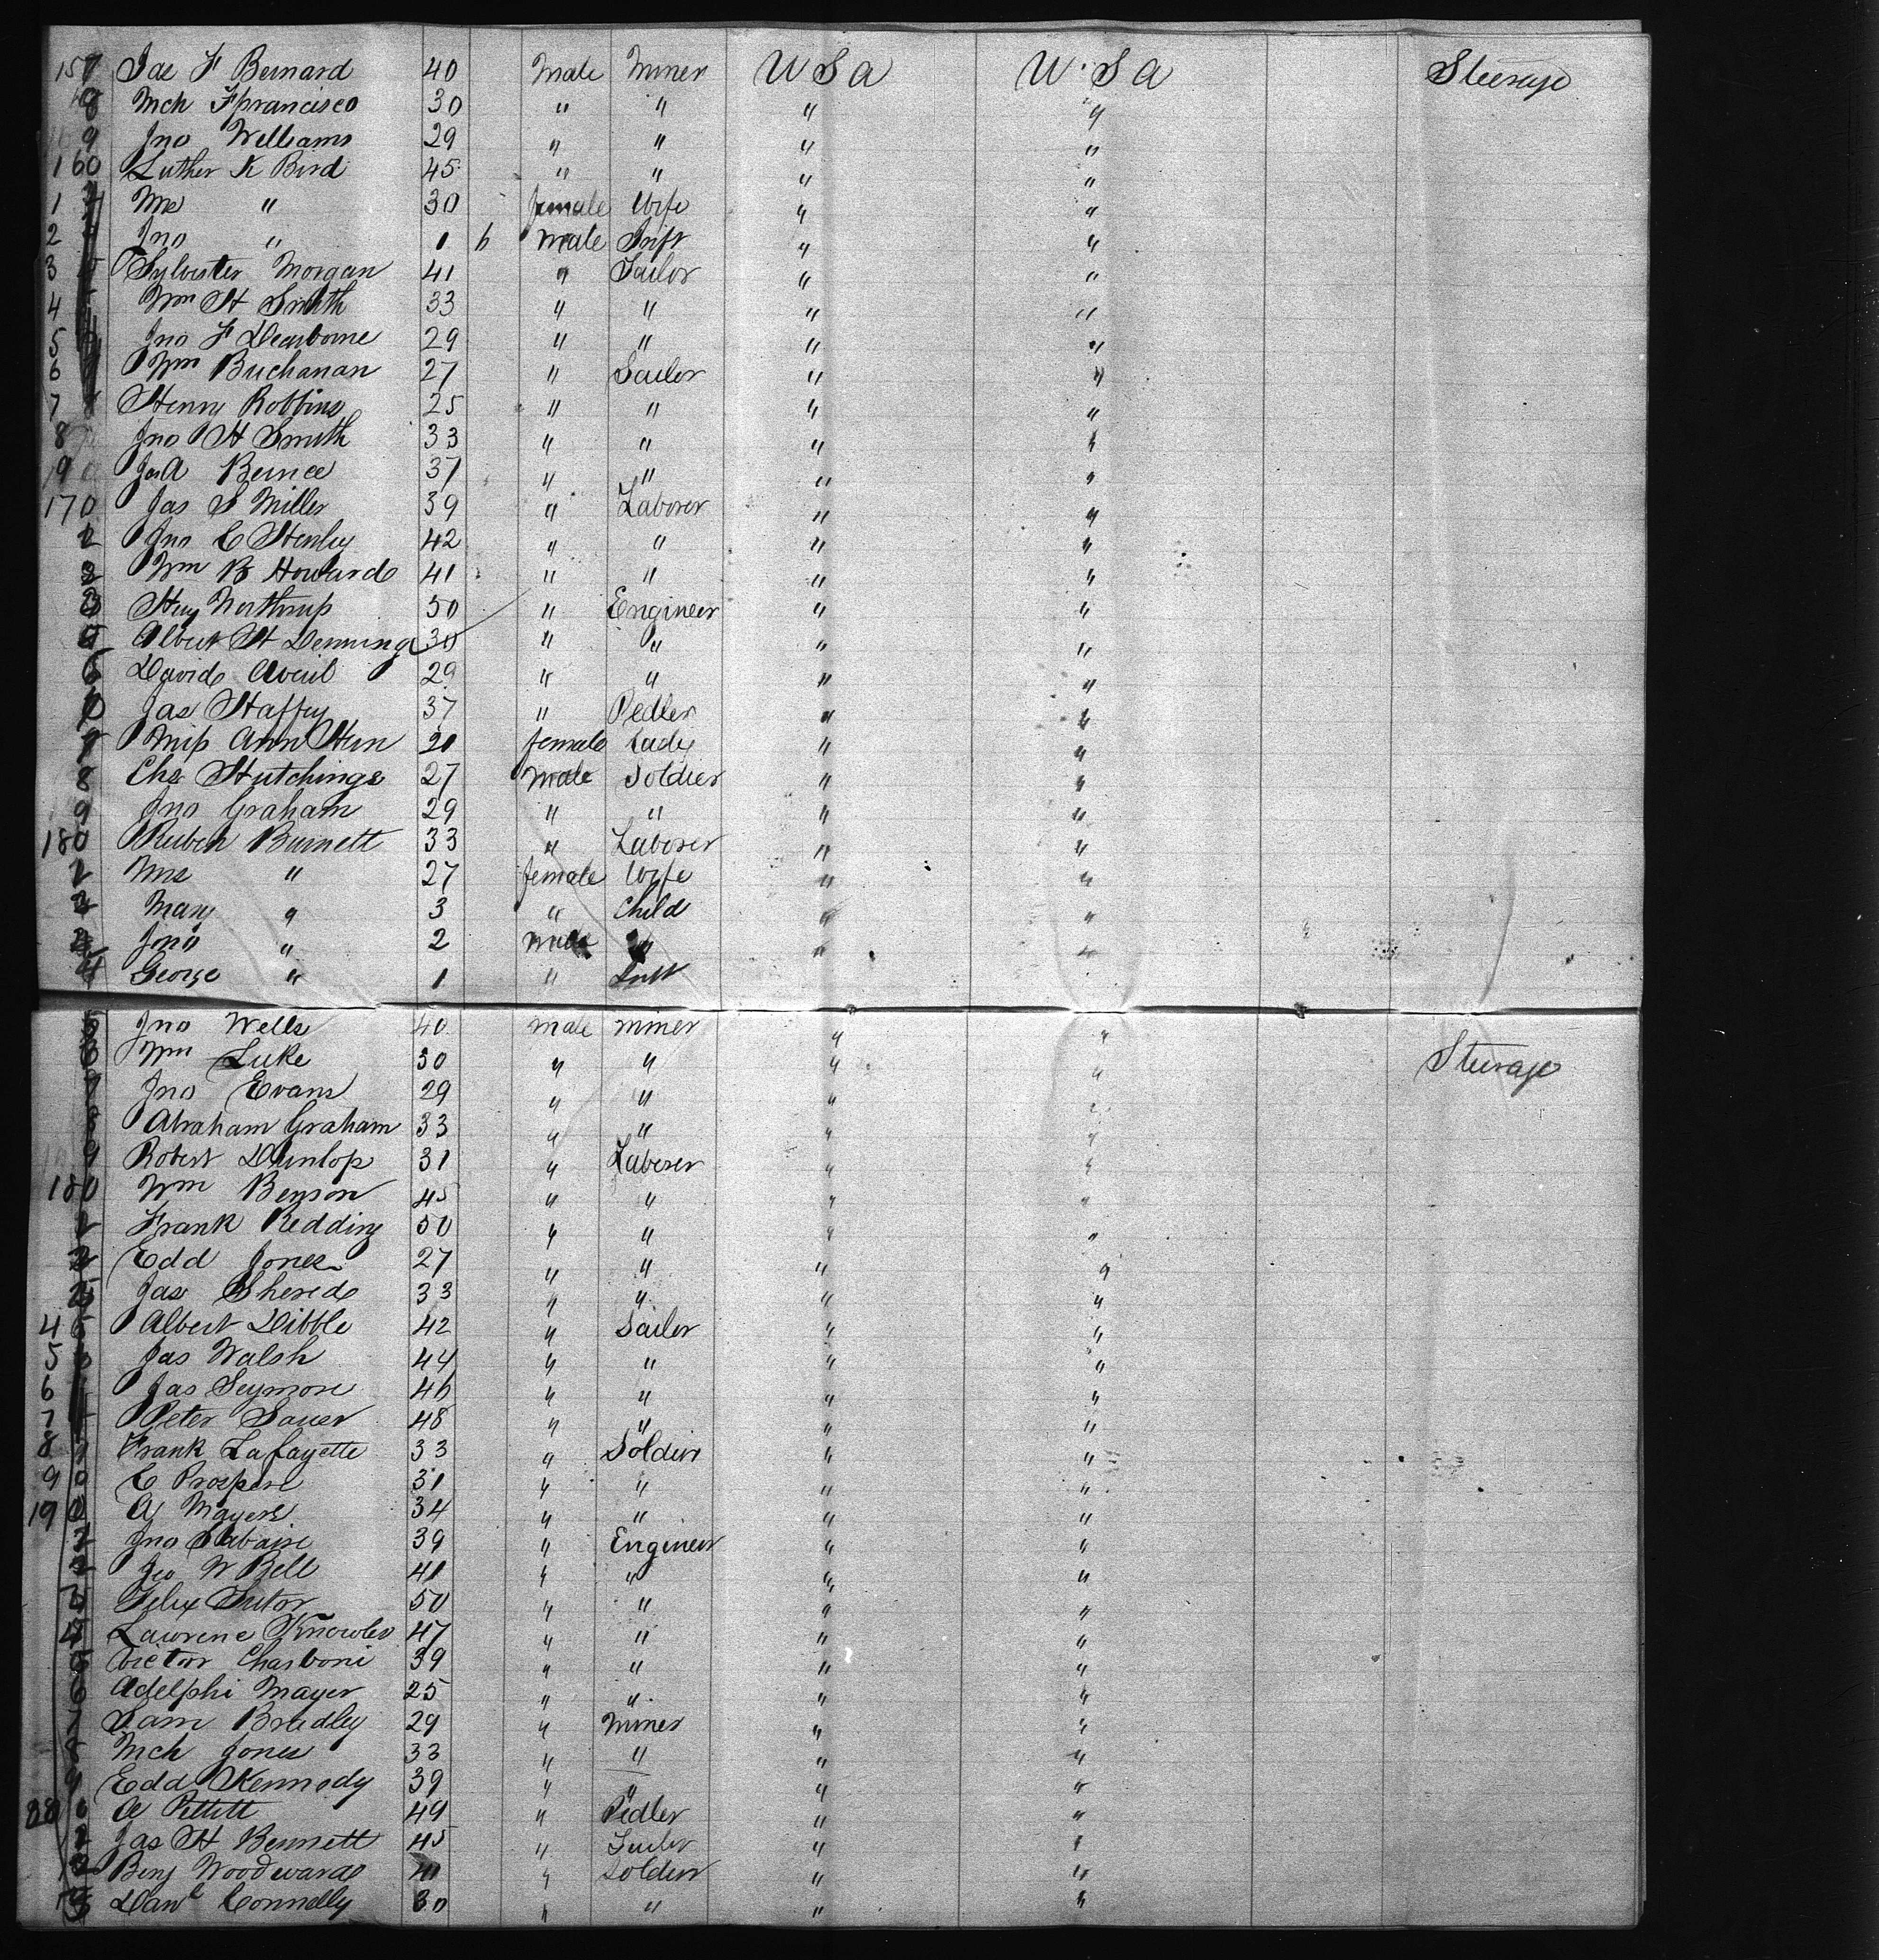 157 Jas F Bernard 40 male Miner U S a U S a Steerage
8 Mch Francisco 30 " " " "
9 Jno Williams 29 " " " "
160 Luther K Bird 45 " " " "
1 Mrs " 30 female Wife " "
2 Jno " 1 male Inft " "
3 Sylvester Morgan 41 " Tailor " "
4 Wm H Smith 33 " " " "
5 Jno F Dearborne 29 " " " "
6 Wm Buchanan 27 " Sailor " "
7 Henry Robbins 25 " " " "
8 Jno H Smith 33 " " " "
9 Bunce 37 " " " "
170 Jas S Miller 39 " Laborer " "
Jno C Henley 42 " " " "
2 Wm B Howard 41 " " " "
3 Hy Northrup 50 " Engineer " "
Albert H Denning 30 " " " "
David 29 " " " "
Jas Haffey 37 " Pedler " "
Miss Ann 20 female Lady " "
8 Chs Hutchings 27 Male Soldier " "
9 Jno Graham 29 " " " "
180 Reuben Burnett 33 " Laborer " "
Mrs " 27 female Wife " "
Mary " 3 " Child " "
Jno " 2 male " " "
4 George " 1 " Inft
Jno Wells 40 male miner " "
Wm Luke 30 " " " " Steerage
Jno Evans 29 " " " "
Abraham Graham 33 " " " "
9 Robert Dunlop 31 " Laborer " "
180 Wm Benson 45 " " " "
Frank Redding 50 " " " "
Edd Jones 27 " " " "
Jas Shered 33 " " " "
4 Albert Dibble 42 " Sailor " "
5 Jas Walsh 44 " " " "
6 Jas Seymore 46 " " " "
7 Peter Sauer 48 " " " "
8 Frank Lafayette 33 " Soldier " "
9 C Prospere 31 " " " "
190 A Mayers 34 " " " "
Jno 39 " Engineer " "
Geo W Bell 41 " " " "
Felix Sutor 50 " " " "
4 Lawrence Knowles 47 " " " "
Victor Charboni 39 " " " "
6 Adelphi Mayer 25 " " " "
7 Sam Bradley 29 " Miner " "
8 Mch Jones 33 " " " "
9 Edd Kennedy 39 " " " "
A Pettett 49 " Pedler " "
Jas H Bennett 45 " " "
2 Benj Woodward 40 " Soldier " "
3 Danl Connelly 30 " " " "